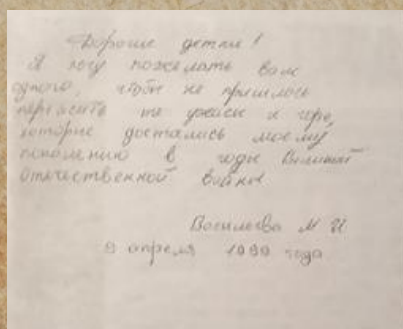 Дорогие детки!
Я хочу пожелать вам
одного, чтобы не пришлось
пережить те ужасы и горе,
которые достались моему
поколению в годы Великой
Отечественной войны
Васильева М И
9 апреля 1999 года